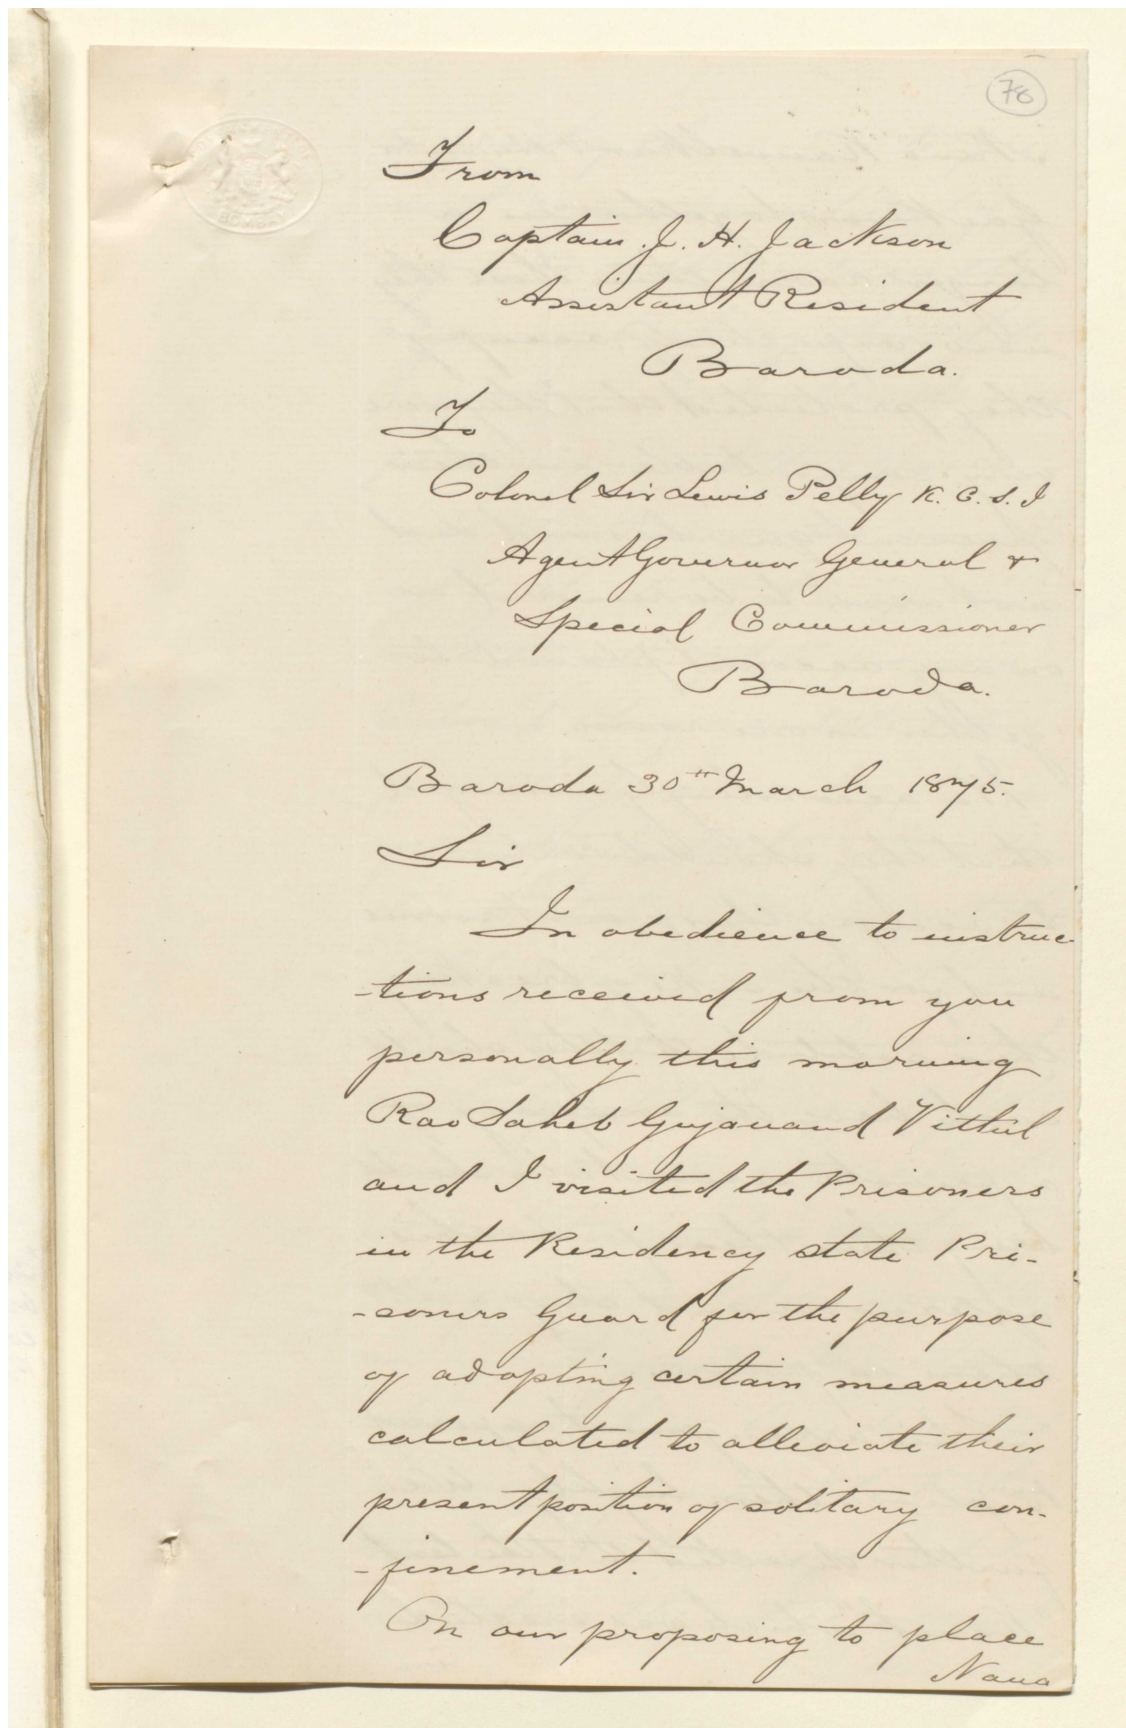 78
From
Captain J. H. Jackson
Assistant Resident
Baroda.
To
Colonel Sir Lewis Pelly K. C. S. I
Agent Governor General &
Special Commissioner
Baroda.
Baroda 30th March 1875.
Sir
In obedience to instruc-
-tions received from you
personally this morning
Rao Saheb Gujanand Vithul
and I visited the Prisoners
in the Residency state Pri-
-soners Guard for the purpose
of adopting certain measures
calculated to alleviate their
present position of solitary con-
-finement.
On our proposing to place
Nana